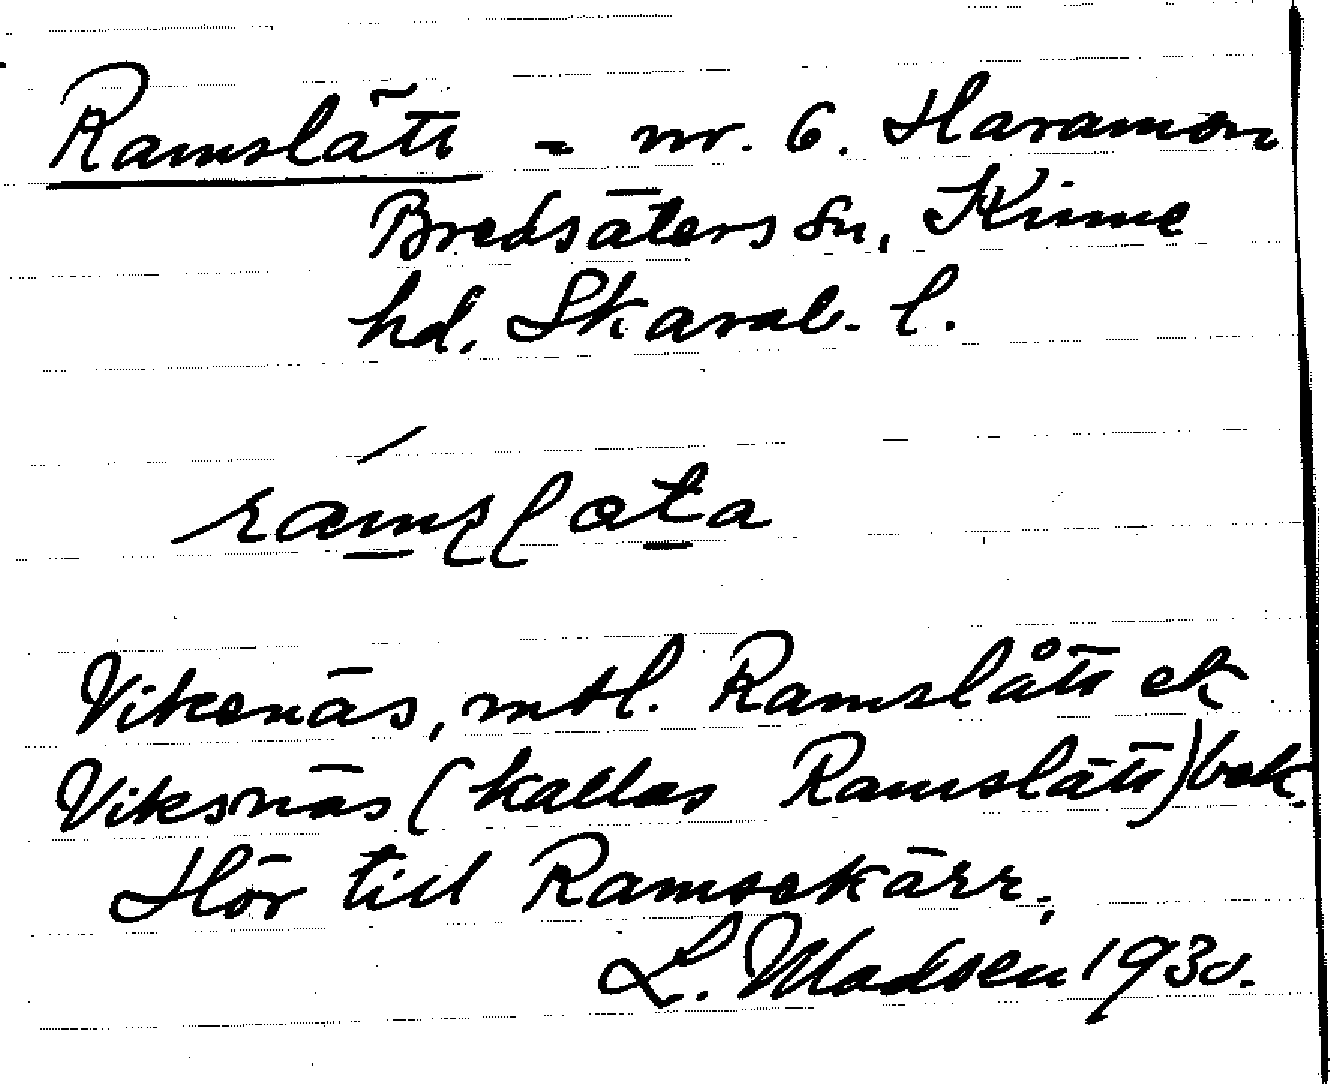 Ramslätt - nr. 6. Haramon
Bredsäters sn, Kinne
hd. Skarab. l.
Vikenäs, mtl. Ramslått ek
Viksnäs (kallas Ramslätt) bek.
Hör till Ramsekärr.
L. Madsen 1930.